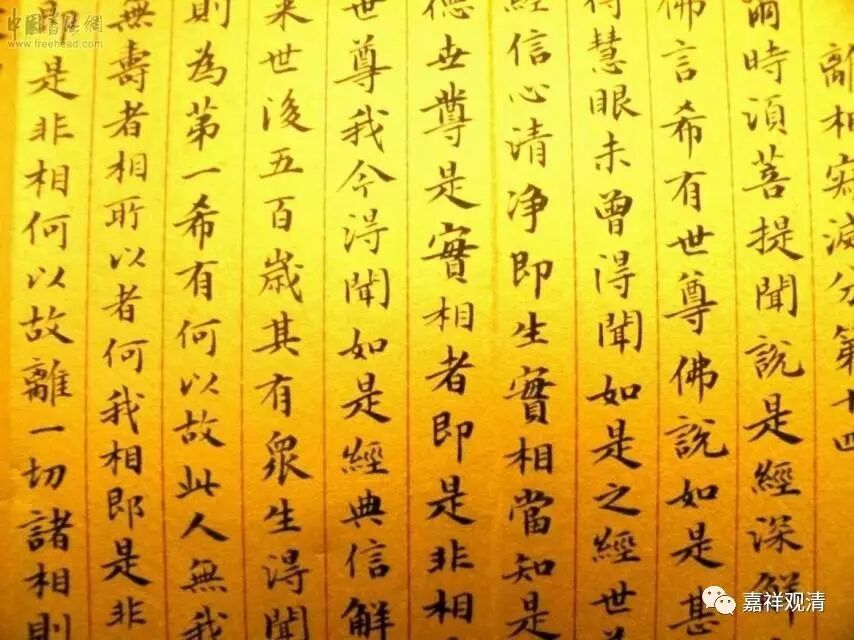 離相寂滅分第十四
爾時須菩提聞說是經深解
佛言希有世尊佛說如是甚
得慧眼未曾得聞如是之經世
經信心清淨即生實相當知是
德世尊是實相者即是非相
世尊我今得聞如是經典信解
来世後五百歲其有眾生得聞
則為第一希有何以故此人無我
無壽者相所以者何我相即是非
即是非相何以故離一切諸相則
www.treehead.com
嘉祥观清